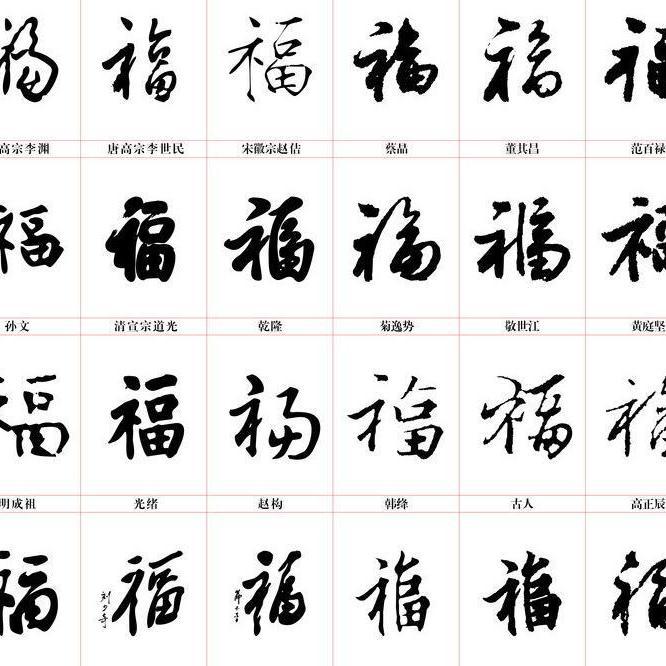 福 福 福 福 福 福
高宗李渊 唐高宗李世民 宋徽宗赵佶 蔡晶 董其昌 范百禄
福 福 福 福 福 福
孙文 清宣宗道光 乾隆 菊逸势 敬世江 黄庭坚
福 福 福 福 福 福
明成祖 光绪 赵构 韩绛 古人 高正辰
福 福 福 福 福 福